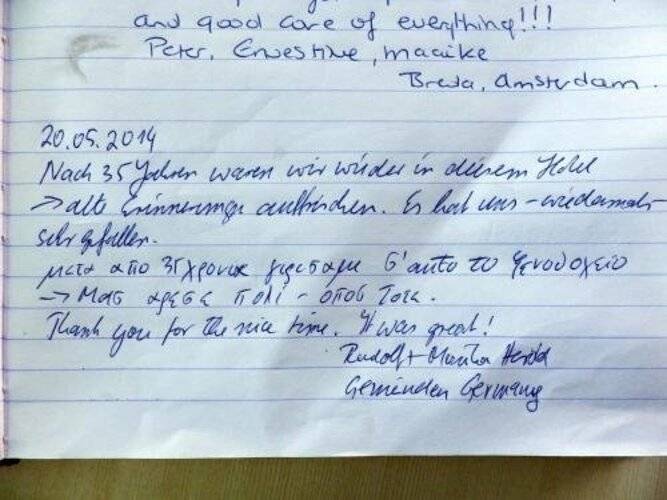 and good care of everything!!!
Peter, Ernestine, maaike
Breda, Amsterdam.
20.05.2014
Nach 35 Jahren waren wir wieder in diesem Hotel
→ alte Erinnerunge auffrischen. Es hat uns - wiedermals -
sehr gefallen.
μετα απο 35 χρονια γιρισαμε σ'αυτο το ξενοδοχειο
→ Μας αρεσε πολι - οπος τοτε.
Thank you for the nice time. It was great!
Rudolf + Marika
Gemünden Germany